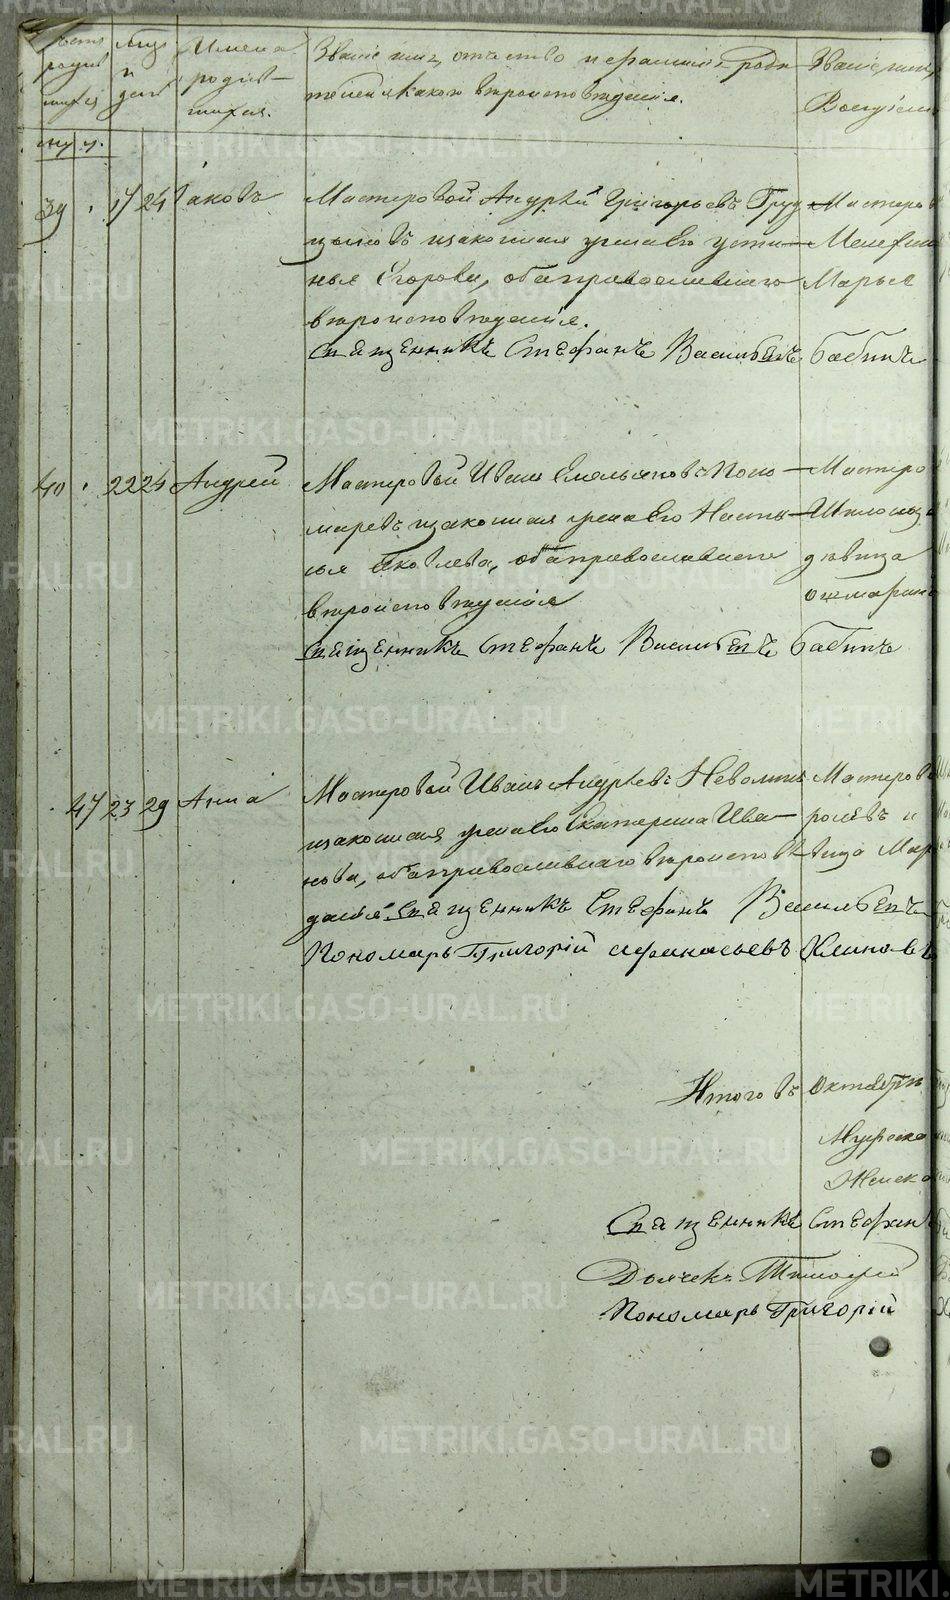 Счетъ родив шихся
Мцъ и день
Имена родив- шихся.
Званіе имя, отчество и фамилія роди
телей и какого вѣроисповѣданія.
Званіе имя
Воспріем
м. ж.
39 17 24 Іаковъ
Мастеровой Андрей Григорьевъ Груз Мастеров
цыковъ и законная жена его Усти-
нья Егорова, оба православнаго Марья
вѣроисповѣданія.
Священникъ Стефанъ Васильевъ Бабинъ
40 22 24 Андрей
Мастеровой Иванъ Емельяновъ Поно- Мастеро
маревъ и законная жена его Наста-
сья Яковлева, оба православнаго девица
вѣроисповѣданія
Священникъ Стефанъ Васильевъ Бабинъ
47 23 29 Анна
Мастеровой Иванъ Андреевъ Неволинъ Мастеров
и законная жена его Екатерина Ива- ролевъ и
нова, оба православнаго вѣроисповѣ- девица Мар
данія. Священникъ Стефанъ Васильевъ
Пономарь Григорій Афанасьевъ Хлыновъ
Итого въ Октябрѣ
Мужеска
Женска
Священникъ Стефанъ
Дьячекъ Тимофей
Пономарь Григорій
METRIKI.GASO-URAL.RU